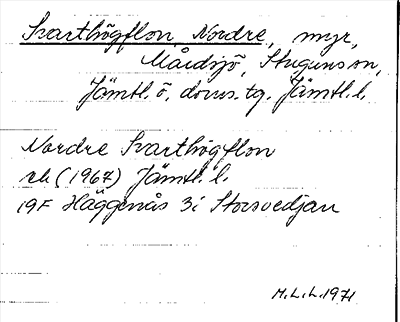 Svarthögflon, Nordre, myr,
Mårdsjö, Stuguns sn,
Jämtl. ö. doms. tg. Jämtl. l.
Nordre Svarthögflon
rk (1967) Jämtl. l.
19F Häggenås 3i Storsvedjan
M.L.L. 1971